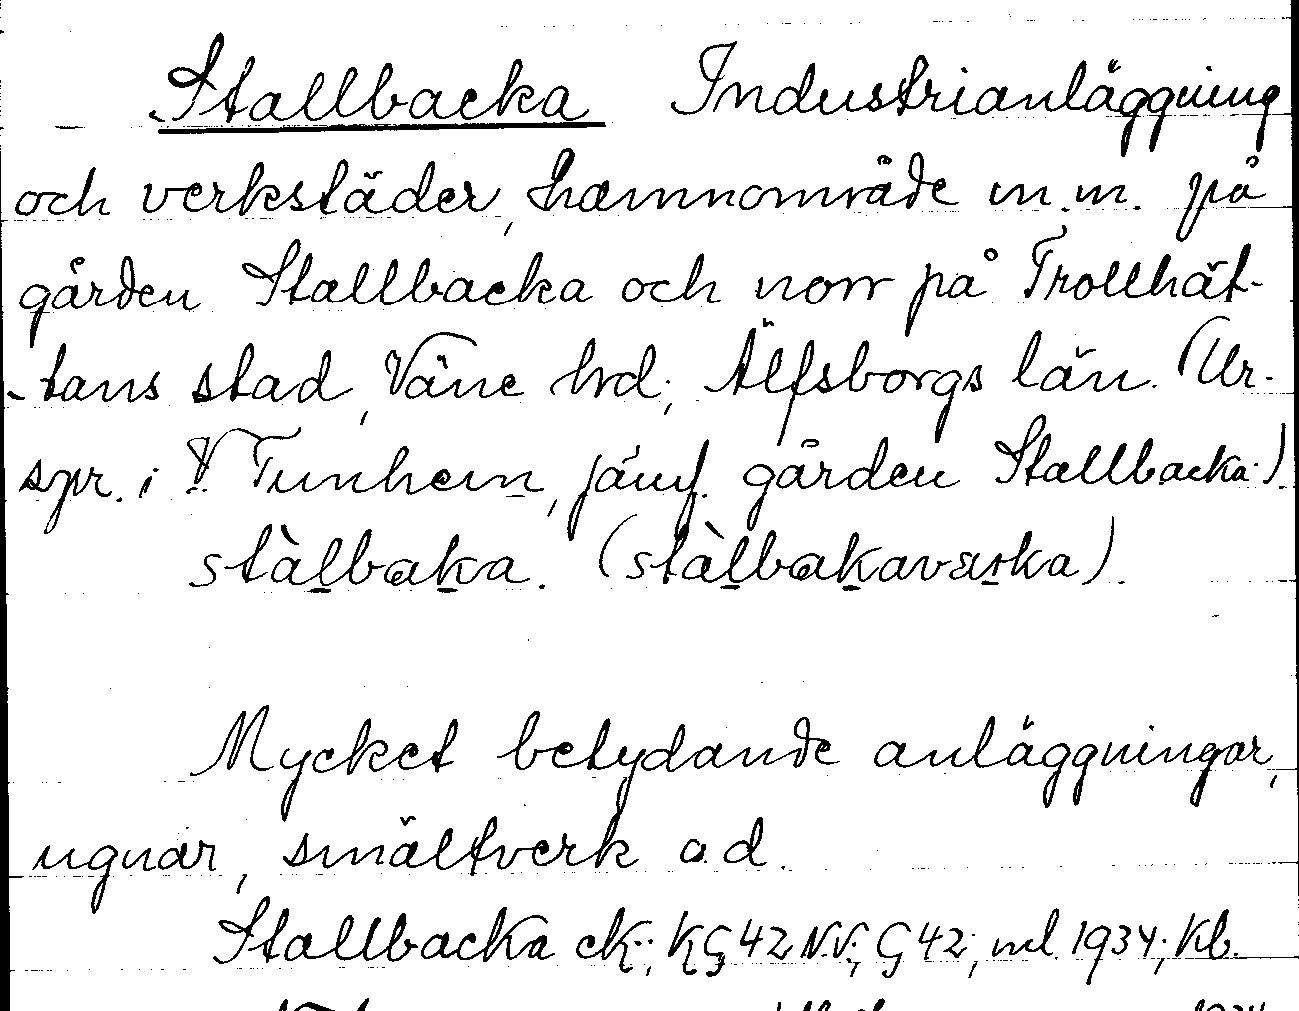 Stallbacka Industrianläggning
och verkstäder, hamnområde m.m. på
gården Stallbacka och norr på Trollhät-
tans stad, Väne hrd; Älfsborgs län. (Ur-
spr. i V. Tunhem, jämf. gården Stallbacka.)
stàlbaka. (stàlbakavärka).
Mycket betydande anläggningar,
ugnar, smältverk o.d.
Stallbacka ek; KG 42 N.V.; G 42; ml 1934; Kb.